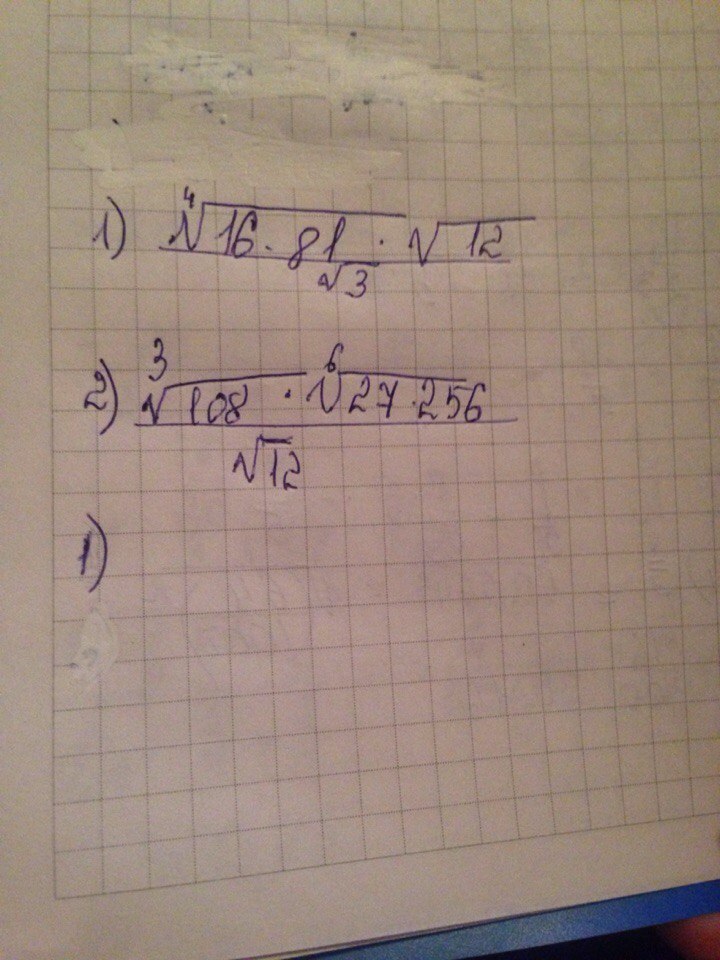 1) ⁴√16·81·√12
√3
2) ³√108·⁶√27·256
√12
1)